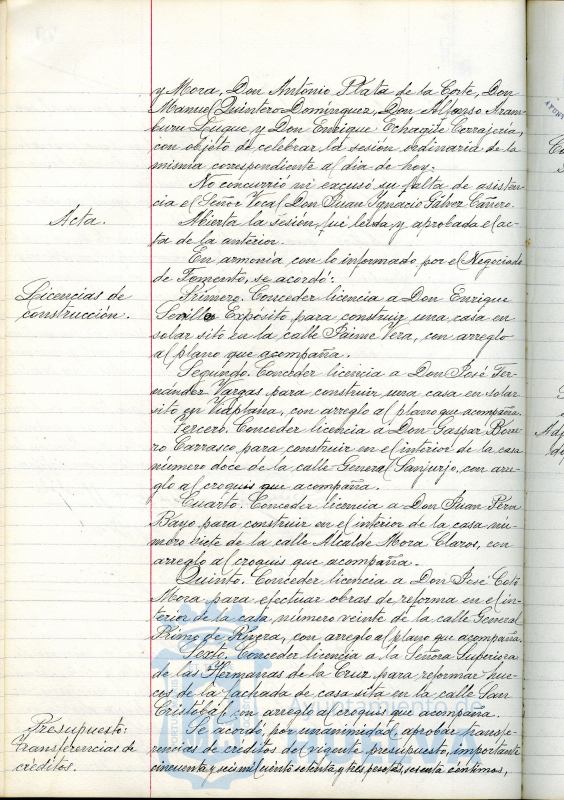 y Mora, Don António Plata de la Corte, Don
Manuel Quintero Domínguez, Don Alfonso Aram-
buru Luque y Don Enrique Echagüe Cerrajería,
con objeto de celebrar la sesión ordinaria de la
misma correspondiente al dia de hoy.
No concurrió ni excusó su falta de asisten-
cia el Señor Vocal Don Juan Ignacio Gálvez Cañero.
Acta.
Abierta la sesión, fué leida y aprobada el ac-
ta de la anterior.
En armonia con lo informado por el Negociado
de Fomento, se acordó:
Licencias de
construcción.
Primero. Conceder licencia a Don Enrique
Sevilla Expósito para construir una casa en
solar sito en la calle Jaime Vera, con arreglo
al plano que acompaña.
Segundo. Conceder licencia a Don José Fer-
nández Vargas para construir una casa en solar
sito en Viaplana, con arreglo al plano que acompaña.
Tercero. Conceder licencia a Don Gaspar Rome-
ro Carrasco para construir en el interior de la casa
número doce de la calle General Sanjurjo, con arre-
glo al croquis que acompaña.
Cuarto. Conceder licencia a Don Juan Peña
Bayo para construir en el interior de la casa nú-
mero siete de la calle Alcalde Mora Claros, con
arreglo al croquis que acompaña.
Quinto. Conceder licencia a Don José Coto
Mora para efectuar obras de reforma en el in-
terior de la casa número veinte de la calle General
Primo de Rivera, con arreglo al plano que acompaña.
Sexto. Conceder licencia a la Señora Superiora
de las Hermanas de la Cruz para reformar hue-
cos de la fachada de casa sita en la calle San
Cristóbal, con arreglo al croquis que acompaña.
Presupuesto:
transferencias de
créditos.
Se acordó, por unanimidad, aprobar transfe-
rencias de créditos del vigente presupuesto, importante
cincuenta y seis mil ciento setenta y tres pesetas, sesenta céntimos,
Ayuntamiento de